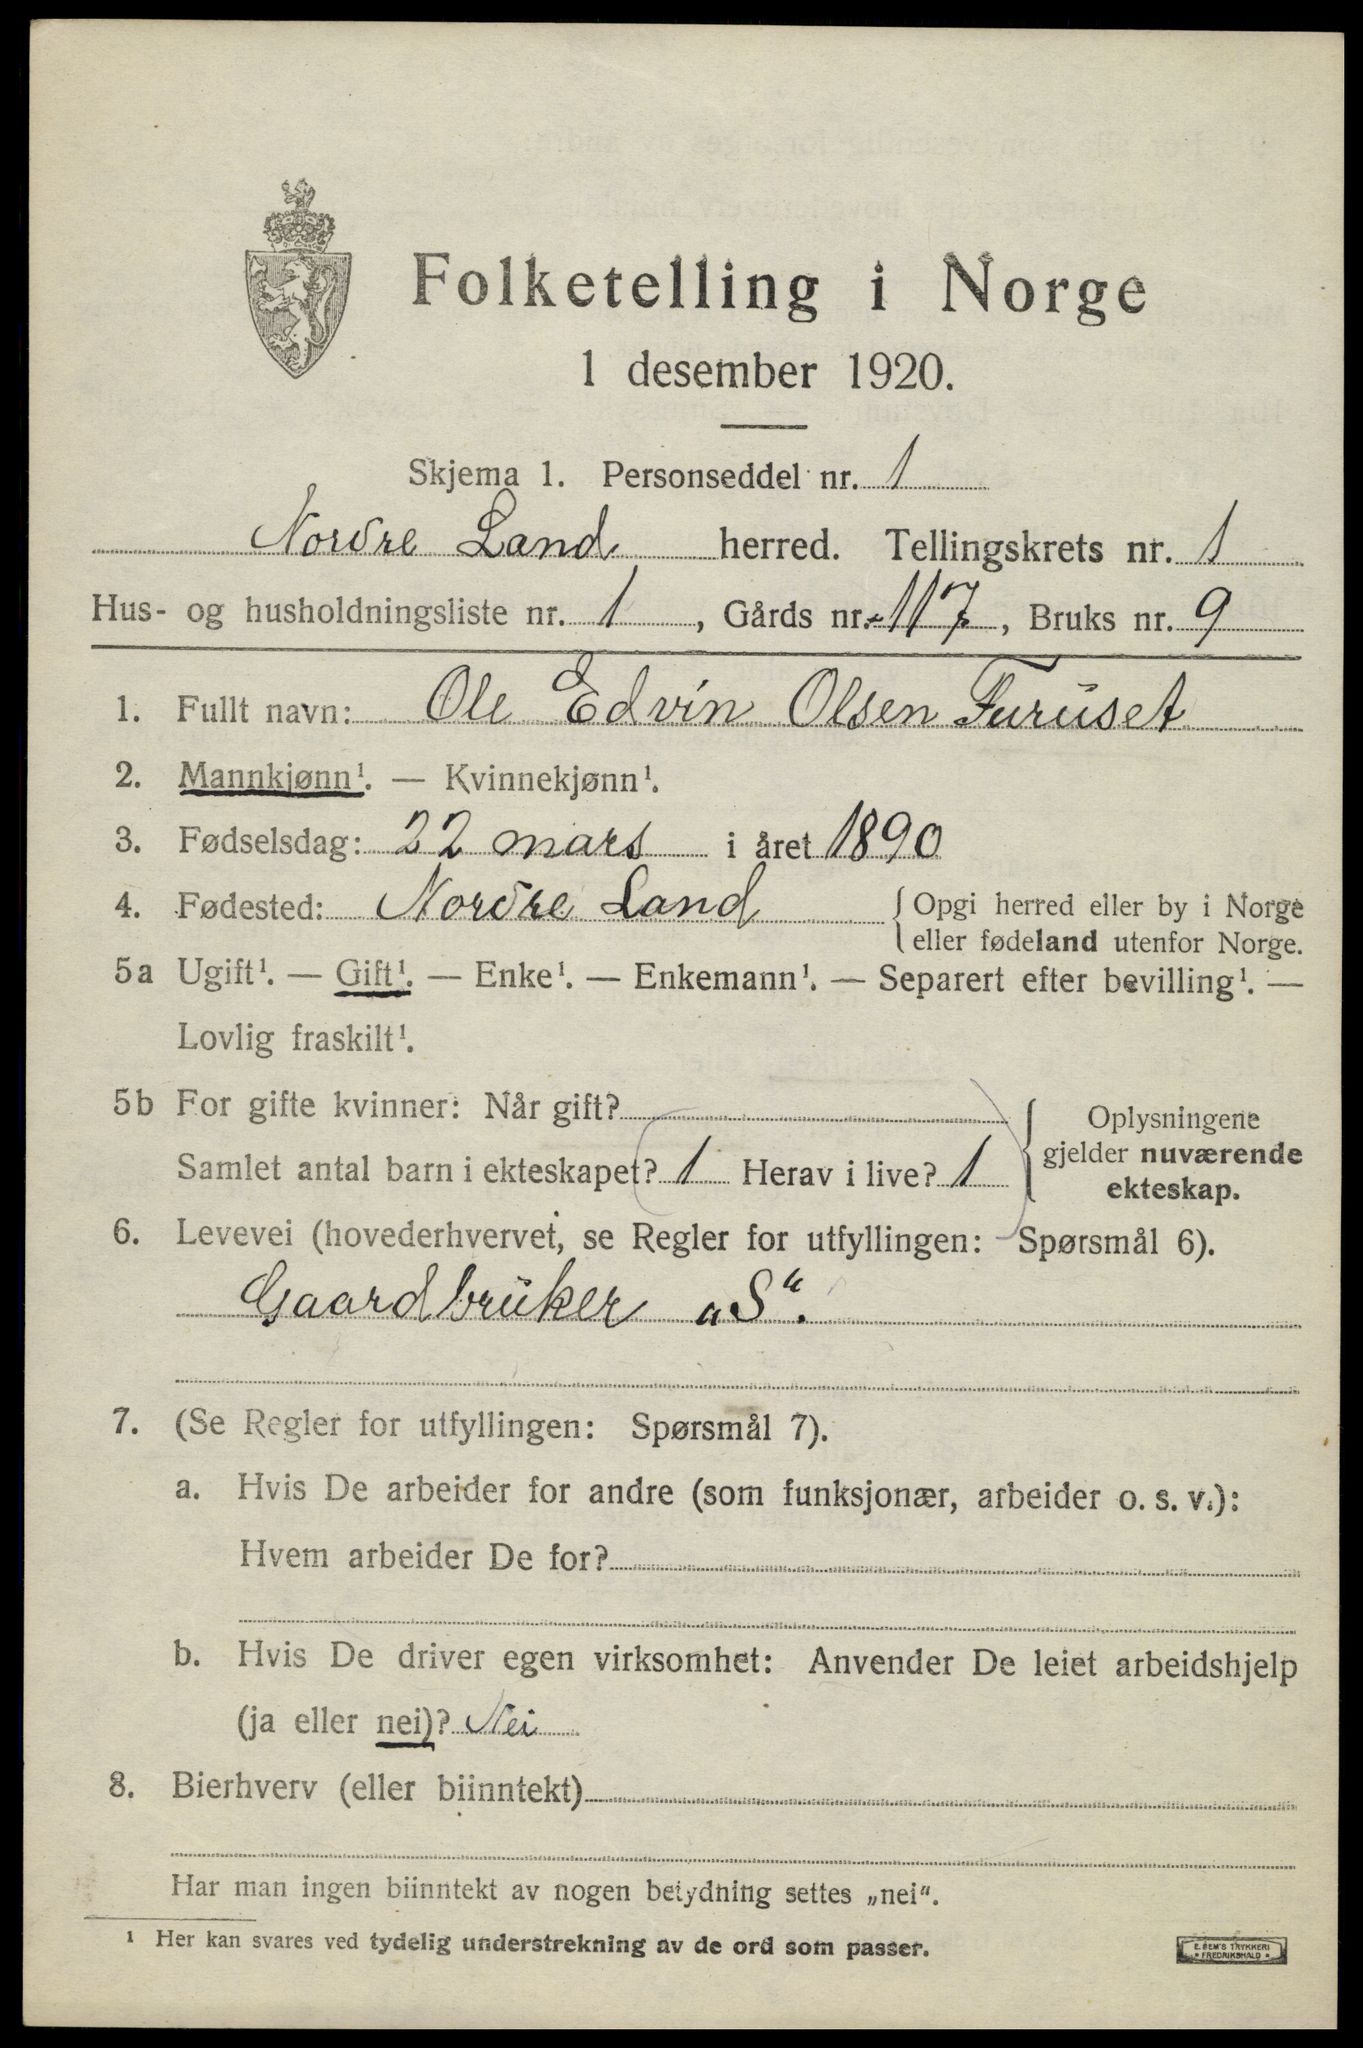 Folketelling i Norge
1 desember 1920.
Skjema 1. Personseddel nr. 1
Nordre Land herred. Tellingskrets nr. 1
Hus- og husholdningsliste nr. 1, Gårds nr. 117, Bruks nr. 9
1. Fullt navn: Ole Edvin Olsen Furuset
2. Mannkjønn¹. — Kvinnekjønn¹.
3. Fødselsdag: 22 mars i året 1890
4. Fødested: Nordre Land { Opgi herred eller by i Norge
eller fødeland utenfor Norge.
5a Ugift¹. — Gift¹. — Enke¹. — Enkemann¹. — Separert efter bevilling¹. —
Lovlig fraskilt¹.
5b For gifte kvinner: Når gift?
Samlet antal barn i ekteskapet? 1 Herav i live? 1
Oplysningene
gjelder nuværende
ekteskap.
6. Levevei (hovederhvervet, se Regler for utfyllingen: Spørsmål 6).
Gaardbruker „S“.
7. (Se Regler for utfyllingen: Spørsmål 7).
a. Hvis De arbeider for andre (som funksjonær, arbeider o. s. v.):
Hvem arbeider De for?
b. Hvis De driver egen virksomhet: Anvender De leiet arbeidshjelp
(ja eller nei)? Nei
8. Bierhverv (eller biinntekt)
Har man ingen biinntekt av nogen betydning settes „nei“.
¹ Her kan svares ved tydelig understrekning av de ord som passer.
E. SEM'S TRYKKERI
FREDRIKSHALD